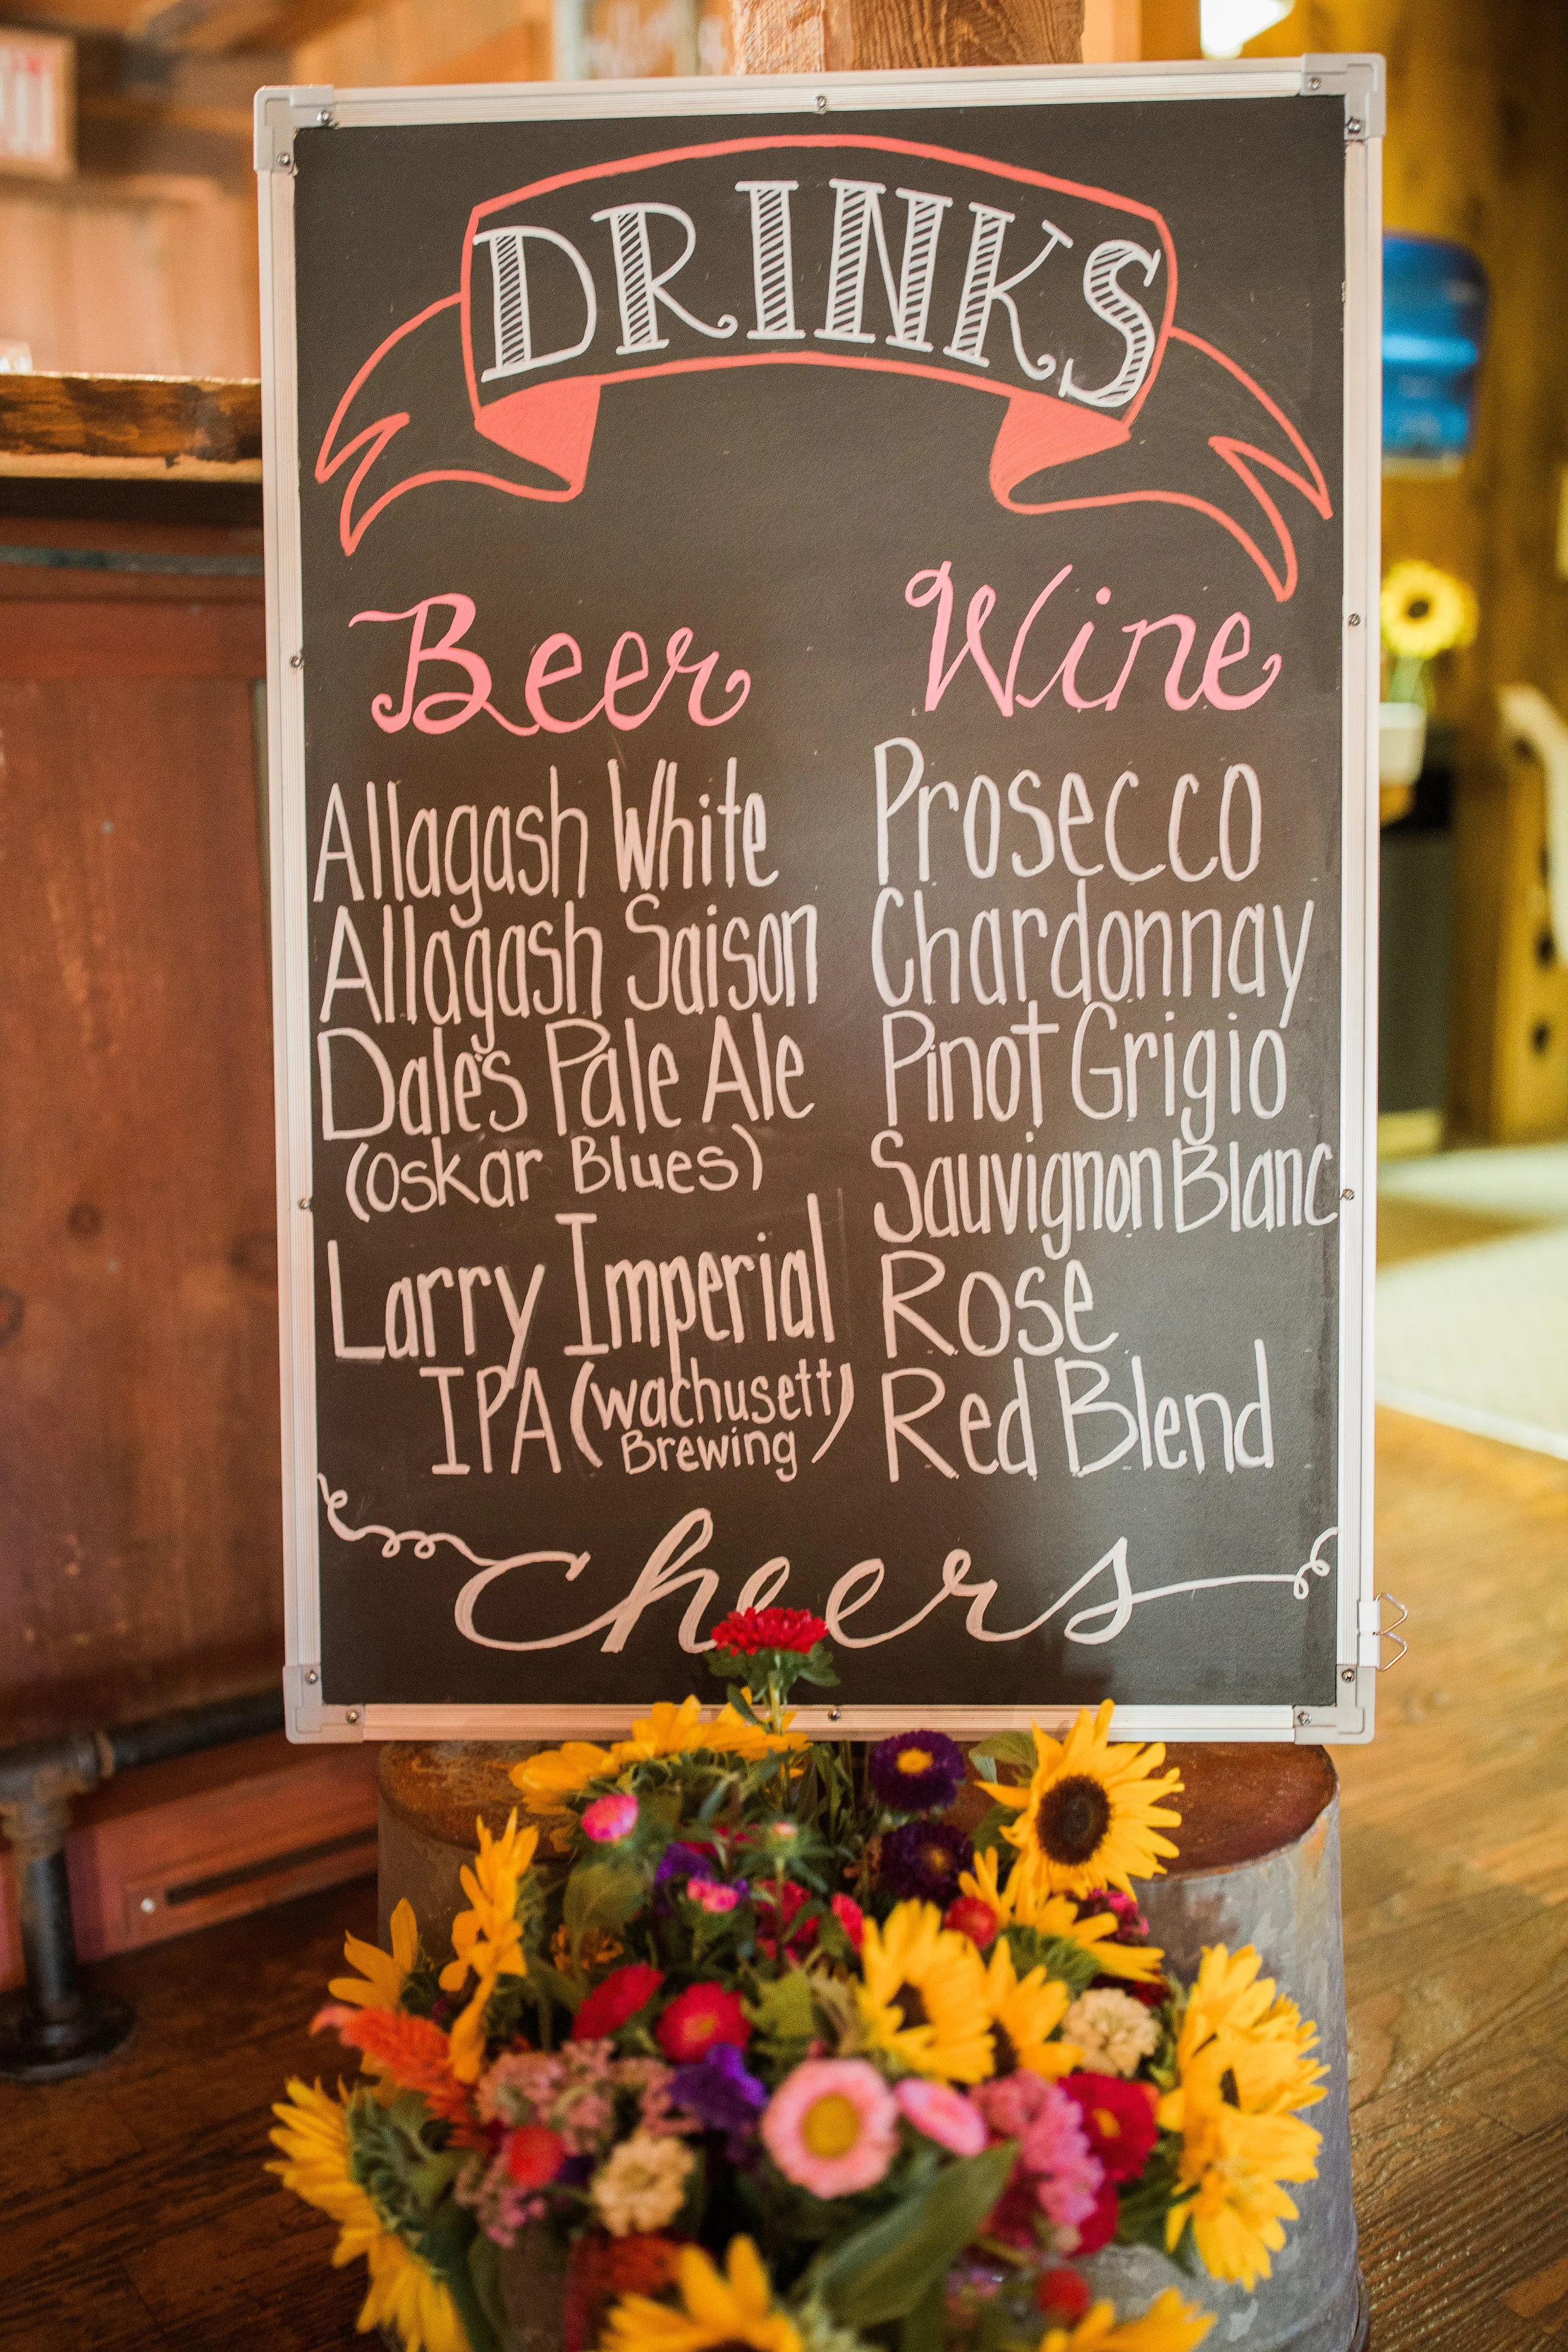 DRINKS
Beer
Allagash White
Allagash Saison
Dale's Pale Ale
(Oskar Blues)
Larry Imperial
IPA (Wachusett
Brewing)
Wine
Prosecco
Chardonnay
Pinot Grigio
Sauvignon Blanc
Rose
Red Blend
Cheers